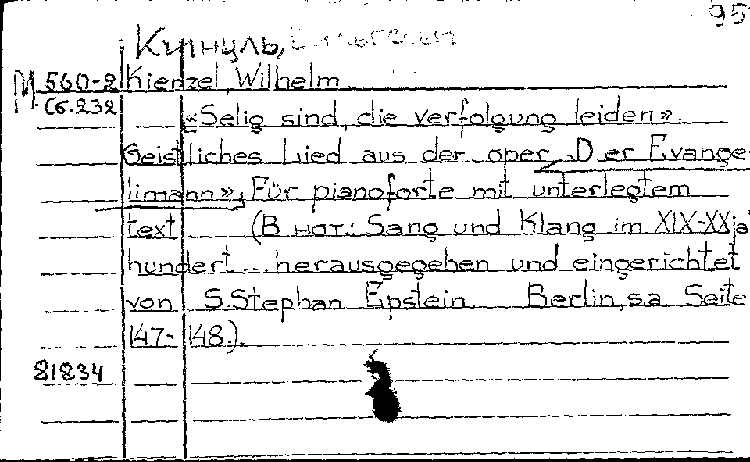 95
Кинцль,
М 560-2 Kienzel, Wilhelm
Сб.232
«Selig sind, die verfolgung leiden»
Geistliches Lied aus der oper „Der Evange-
limann», Für pianoforte mit unterlegtem
text (В нот.: Sang und Klang im XIX-XX ja
hundert... herausgegehen und eingerichtet
von S.Stephan Epstein Berlin, s.a. Seite
147-148).
81834